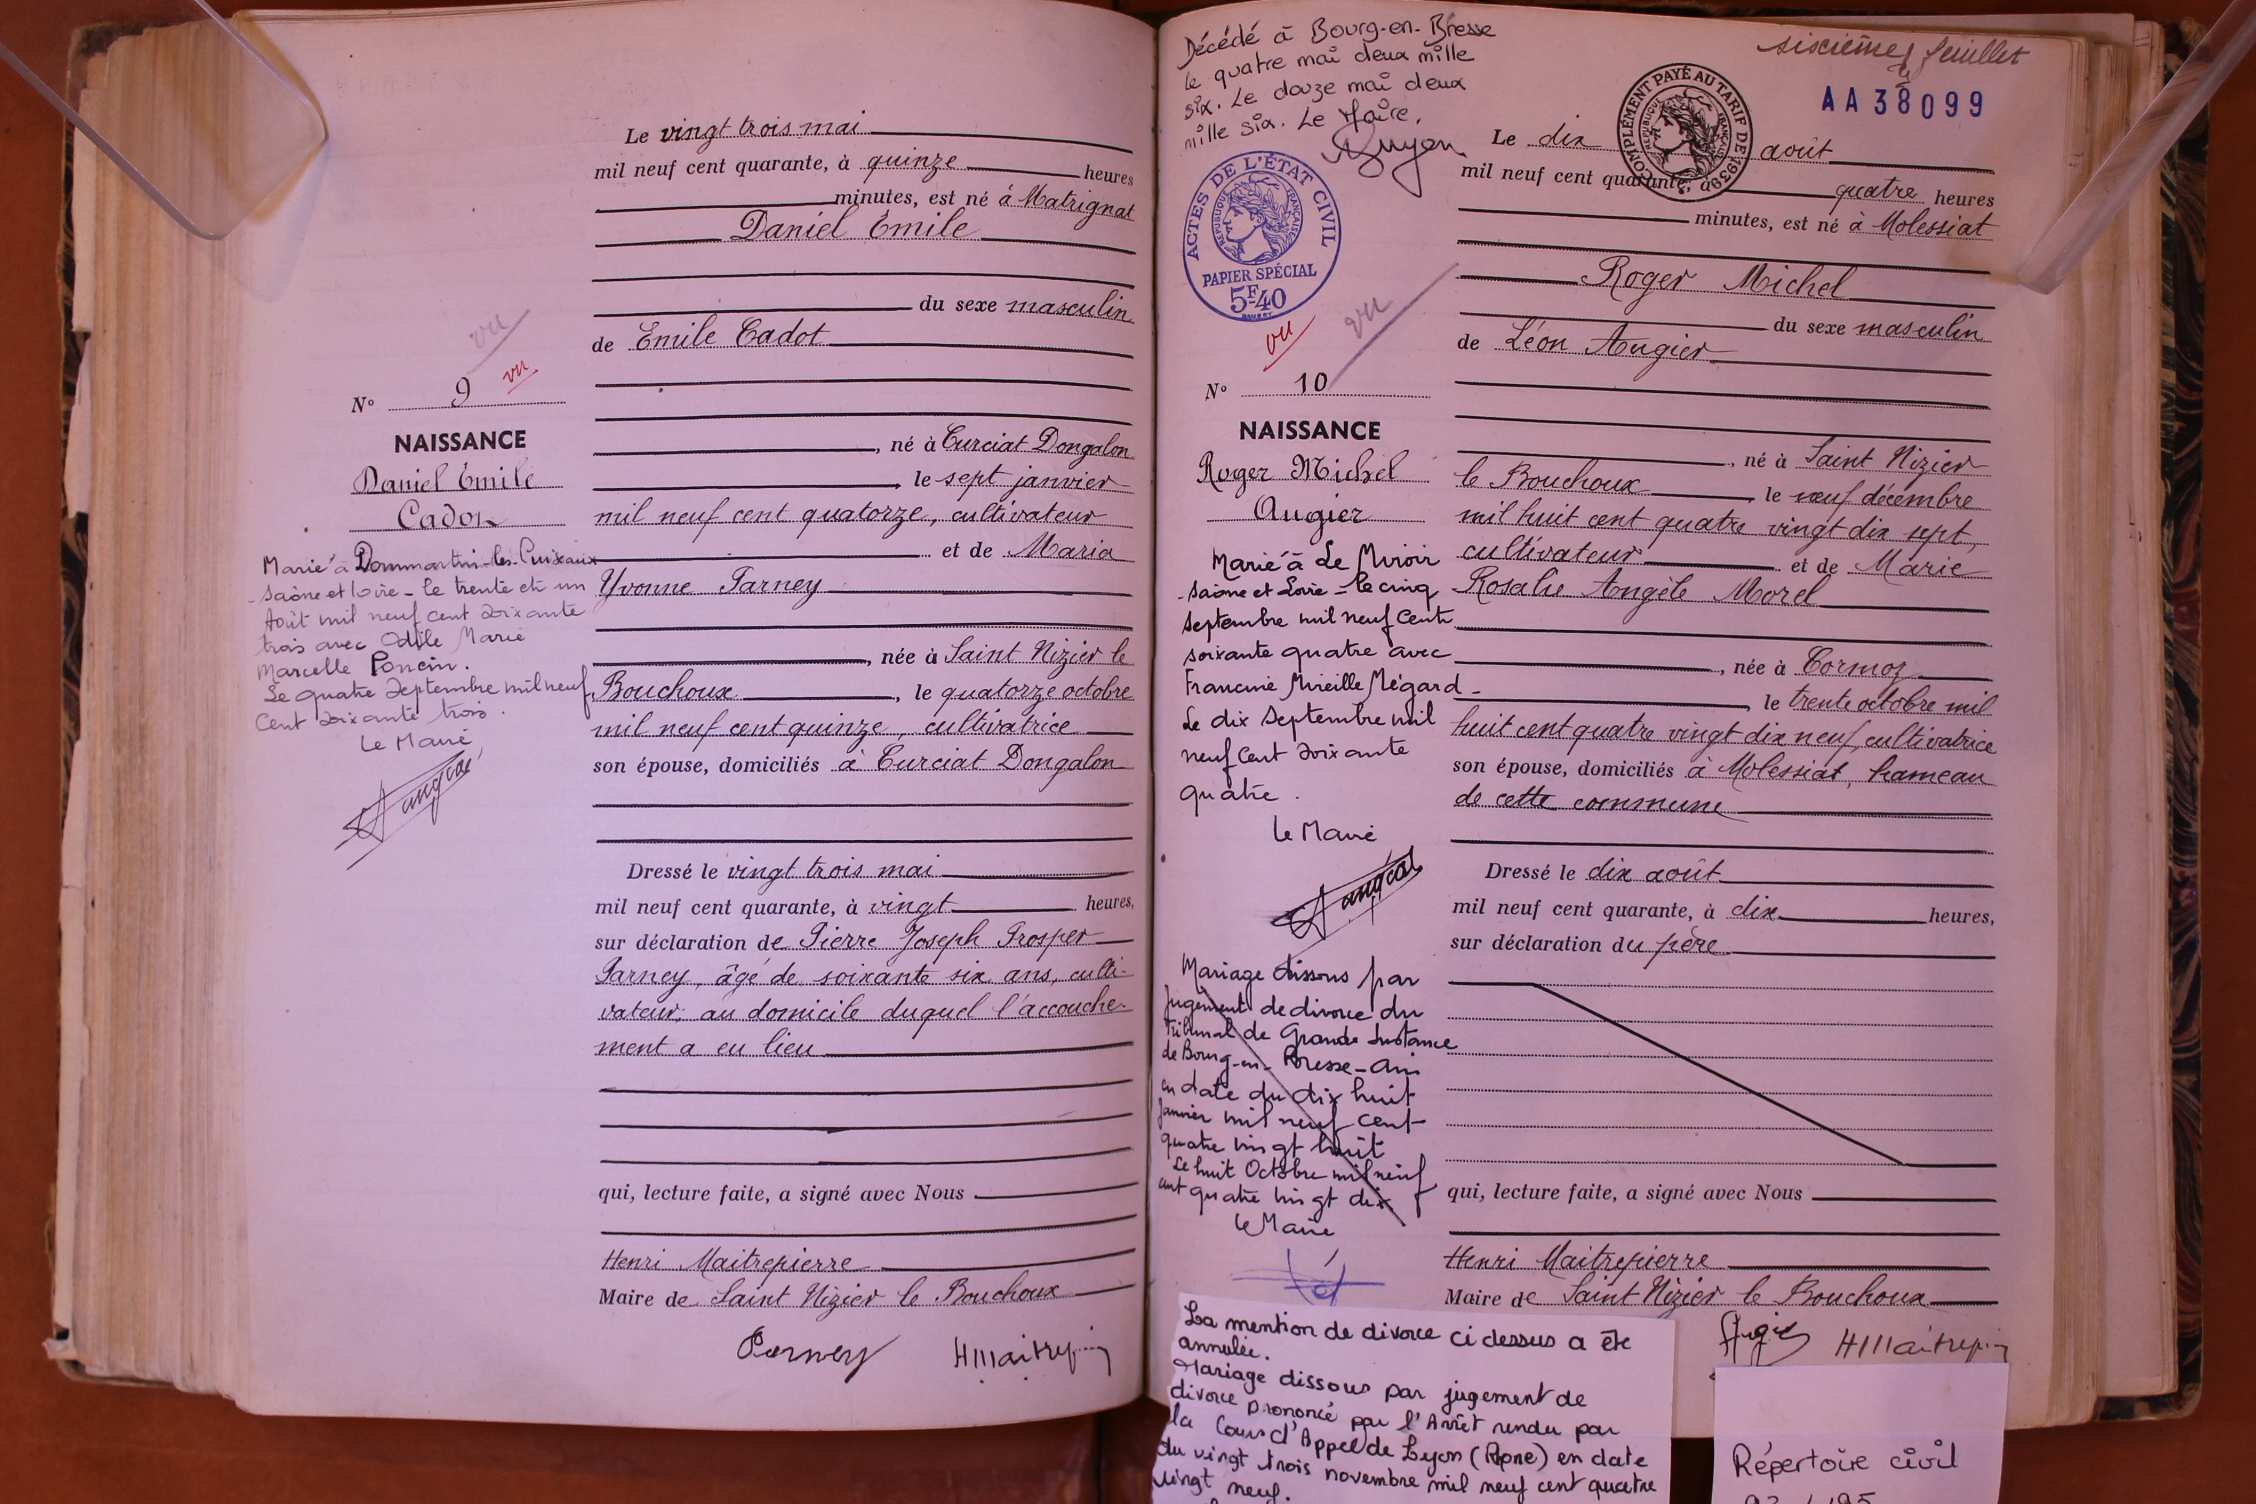 Le vingt trois mai
mil neuf cent quarante, à quinze heures
minutes, est né à Matrignat
Daniel Émile
du sexe masculin
de Emile Cadot
né à Curciat Dongalon
le sept janvier
mil neuf cent quatorze, cultivateur
et de Maria
Yvonne Parney
, née à Saint Nizier le
Bouchoux, le quatorze octobre
mil neuf cent quinze, cultivatrice
son épouse, domiciliés à Curciat Dongalon
Dressé le vingt trois mai
mil neuf cent quarante, à vingt heures,
sur déclaration de Pierre Joseph Prosper
Parney, âgé de soixante six ans, culti-
vateur, au domicile duquel l'accouche-
ment a eu lieu
qui, lecture faite, a signé avec Nous
Henri Maitrepierre
Maire de Saint Nizier le Bouchoux
Parney HMaitrepi
vu
vu
N° 9
NAISSANCE
Daniel Émile
Cadot
Marié à Dommartin-les-Cuiseaux
- Saône et Loire - le trente et un
Août mil neuf cent soixante
trois avec Odile Marie
Marcelle Poncin.
Le quatre Septembre mil neuf
Cent soixante trois.
Le Maire
Décédé à Bourg-en-Bresse
le quatre mai deux mille
six. Le douze mai deux
mille six. Le Maire,
ACTES DE L'ÉTAT CIVIL
RÉPUBLIQUE FRANÇAISE
PAPIER SPÉCIAL
5F40
vu
vu
N° 10
NAISSANCE
Roger Michel
Augier
Marié à Le Miroir
- Saône et Loire - le cinq
Septembre mil neuf cent
soixante quatre avec
Francine Mireille Mégard -
Le dix Septembre mil
neuf cent soixante
quatre.
Le Maire
Mariage dissous par
jugement de divorce du
Tribunal de Grande Instance
de Bourg-en-Bresse - Ain
en date du dix huit
Janvier mil neuf cent
quatre vingt huit
Le huit Octobre mil neuf
cent quatre vingt dix
Le Maire
La mention de divorce ci dessus a été
annulée.
Mariage dissous par jugement de
divorce prononcé par l'Arrêt rendu par
la Cour d'Appel de Lyon (Rhone) en date
du vingt trois novembre mil neuf cent quatre
vingt neuf.
sixième feuillet
AA38099
COMPLÉMENT PAYÉ AU TARIF DE 1939
RÉPUBLIQUE FRANÇAISE
Le dix août
mil neuf cent quarante, à quatre heures
minutes, est né à Molessiat
Roger Michel
du sexe masculin
de Léon Augier
, né à Saint Nizier
le Bouchoux, le neuf décembre
mil huit cent quatre vingt dix sept,
cultivateur et de Marie
Rosalie Angèle Morel
, née à Cormoz
, le trente octobre mil
huit cent quatre vingt dix neuf, cultivatrice
son épouse, domiciliés à Molessiat, hameau
de cette commune
Dressé le dix août
mil neuf cent quarante, à dix heures,
sur déclaration du père
qui, lecture faite, a signé avec Nous
Henri Maitrepierre
Maire de Saint Nizier le Bouchoux
Augier HMaitrepi
Répertoire civil